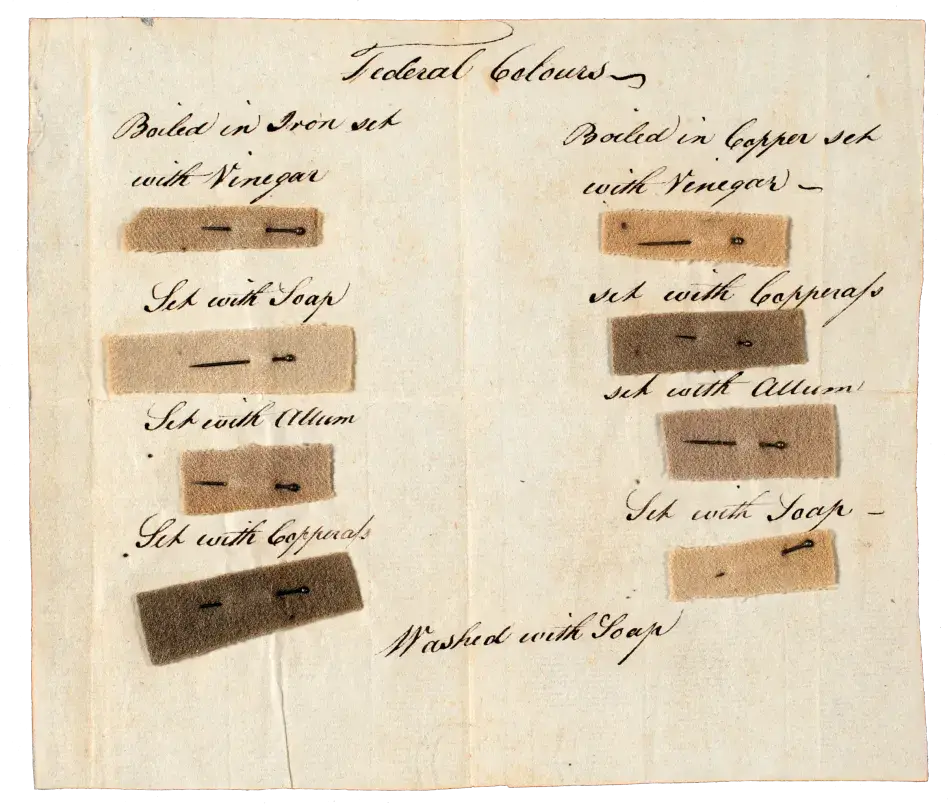 Federal Colours
Boiled in Iron set
with Vinegar
Set with Soap
Set with Allum
Set with Copperass
Boiled in Copper set
with Vinegar –
set with Copperass
set with Allum
Set with Soap –
Washed with Soap